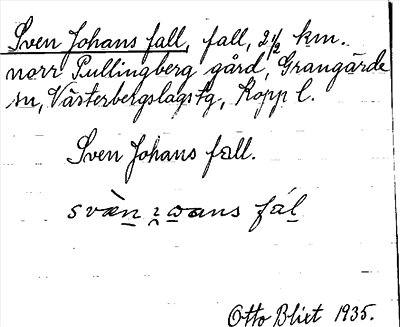 Sven Johans fall, fall, 2½ km.
norr Pullingberg gård, Grangärde
sn, Västerbergslags tg, Kopp l.
Sven Johans fall.
Otto Blixt 1935.